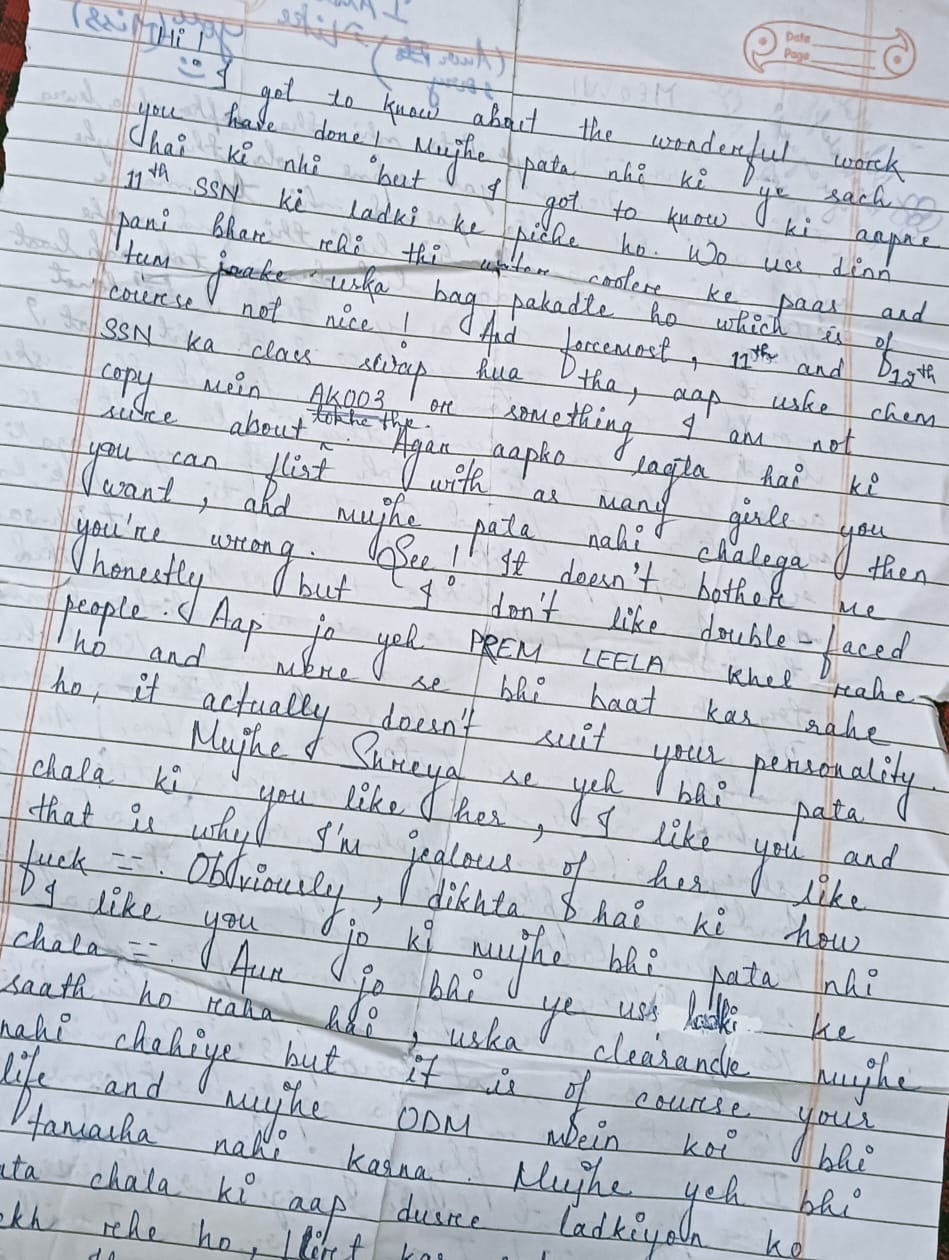 Date
Page
Hi !
I got to know about the wonderful work
you have done! Mujhe pata nhi ki ye sach
hai ki nhi but I got to know ki aapne
11th SSN ki ladki ke piche ho. Wo uss dinn
pani bhare rehi thi water coolere ke paas and
tum jaake uska bag pakadte ho which is of
course not nice ! And foremost, 11th and 12th
SSN ka class swap hua tha, aap uske chem
copy mein AK003 or something I am not
sure about. Agar aapko lagta hai ki
you can flirt with as many girls you
want, and mujhe pata nahi chalega then
you're wrong. See! It doesn't bother me
honestly but I don't like double-faced
people :( Aap jo yeh PREM LEELA khel rahe
ho and mere se bhi baat kar rahe
ho, it actually doesn't suit your personality.
Mujhe Shreya se yeh bhi pata
chala ki you like her, I like you and
that is why I'm jealous of her like
fuck ==. Obviously, dikhta hai ki how
I like you jo ki mujhe bhi pata nhi
chala == Aur jo bhi ye uss ladki ke
saath ho raha hai, uska clearance mujhe
nahi chahiye but it is of course your
life and mujhe ODM mein koi bhi
tamasha nahi karna. Mujhe yeh bhi
ata chala ki aap dusre ladkiyon ko
ekh rehe ho, flirt kar